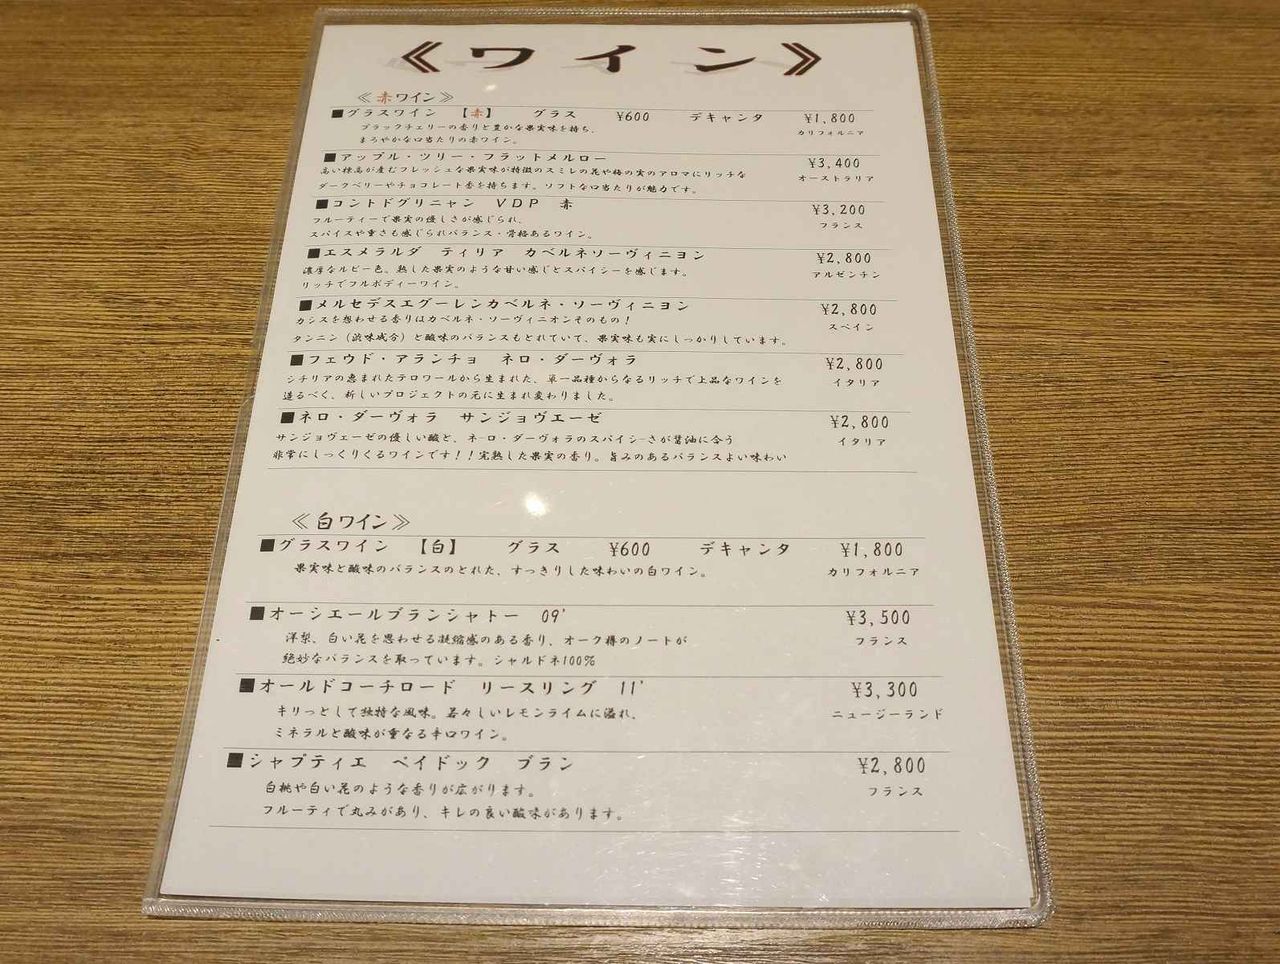 《ワイン》
《赤ワイン》
■グラスワイン 【赤】 グラス ¥600 デキャンタ ¥1,800
ブラックチェリーの香りと豊かな果実味を持ち、 カリフォルニア
まろやかな口当たりの赤ワイン。
■アップル・ツリー・フラットメルロー ¥3,400
高い標高が産むフレッシュな果実味が特徴のスミレの花や梅の実のアロマにリッチな オーストラリア
ダークベリーやチョコレート香を持ちます。ソフトな口当たりが魅力です。
■コントドグリニャン VDP 赤 ¥3,200
フルーティーで果実の優しさが感じられ、 フランス
スパイスや重さも感じられバランス・骨格あるワイン。
■エスメラルダ ティリア カベルネソーヴィニヨン ¥2,800
濃厚なルビー色。熟した果実のような甘い感じとスパイシーを感じます。 アルゼンチン
リッチでフルボディーワイン。
■メルセデスエグーレンカベルネ・ソーヴィニヨン ¥2,800
カシスを想わせる香りはカベルネ・ソーヴィニオンそのもの! スペイン
タンニン(渋味成分)と酸味のバランスもとれていて、果実味も実にしっかりしています。
■フェウド・アランチョ ネロ・ダーヴォラ ¥2,800
シチリアの恵まれたテロワールから生まれた、単一品種からなるリッチで上品なワインを イタリア
造るべく、新しいプロジェクトの元に生まれ変わりました。
■ネロ・ダーヴォラ サンジョヴエーゼ ¥2,800
サンジョヴェーゼの優しい酸と、ネーロ・ダーヴォラのスパイシーさが醤油に合う イタリア
非常にしっくりくるワインです!!完熟した果実の香り。旨みのあるバランスよい味わい
《白ワイン》
■グラスワイン 【白】 グラス ¥600 デキャンタ ¥1,800
果実味と酸味のバランスのとれた、すっきりした味わいの白ワイン。 カリフォルニア
■オーシエールブランシャトー 09' ¥3,500
洋梨、白い花を思わせる凝縮感のある香り、オーク樽のノートが フランス
絶妙なバランスを取っています。シャルドネ100%
■オールドコーチロード リースリング 11' ¥3,300
キリっとして独特な風味。若々しいレモンライムに溢れ、 ニュージーランド
ミネラルと酸味が重なる辛口ワイン。
■シャプティエ ペイドック ブラン ¥2,800
白桃や白い花のような香りが広がります。 フランス
フルーティで丸みがあり、キレの良い酸味があります。